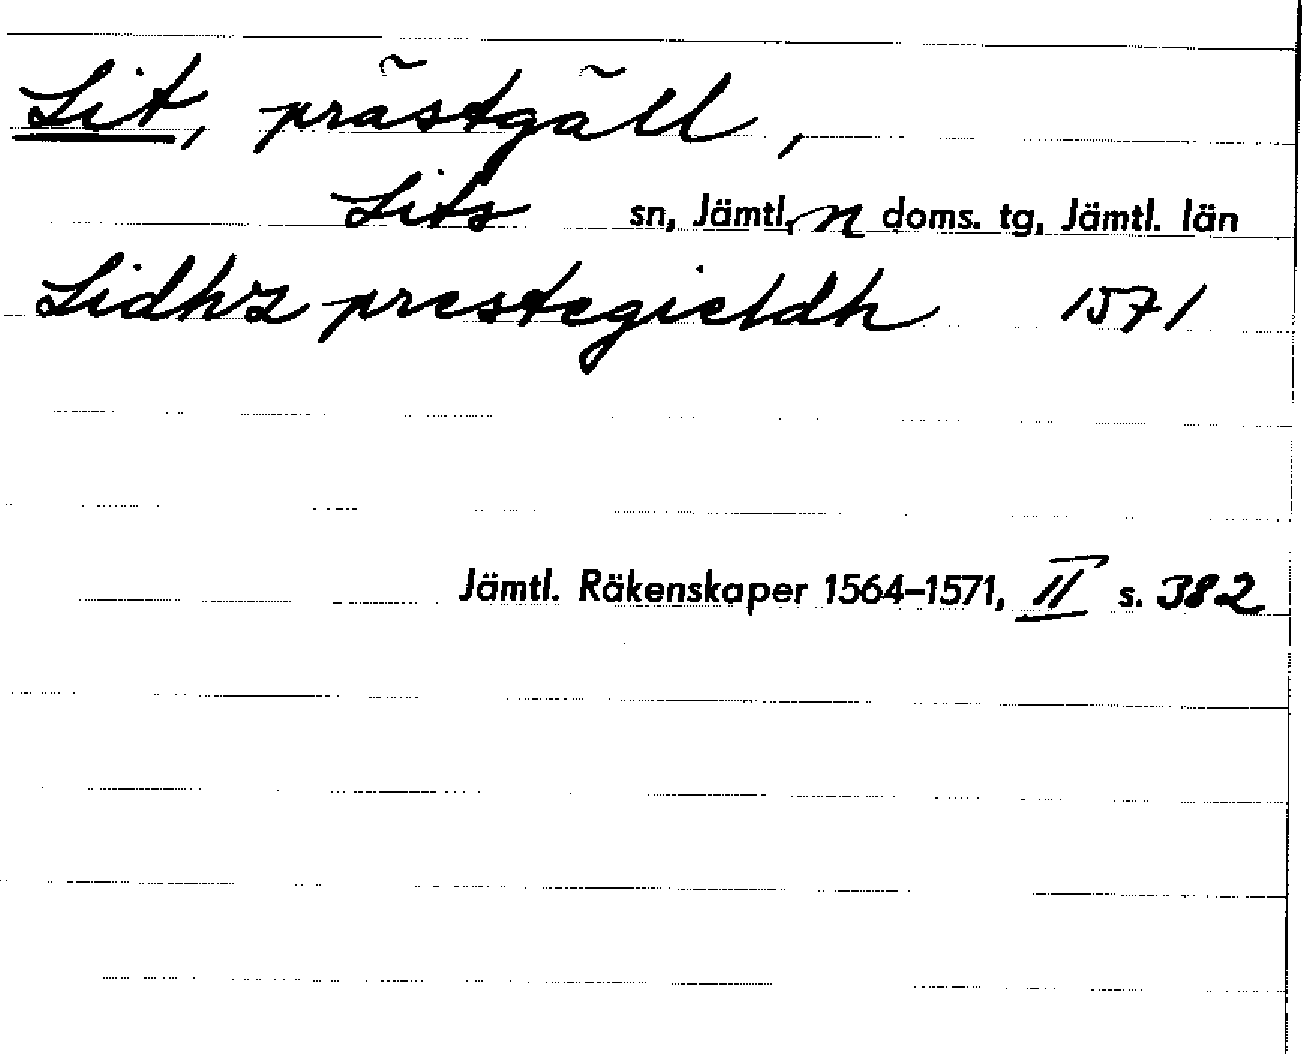 Lit, prästgäll,
Lits sn, Jämtl. n doms. tg, Jämtl. län
Lidhz prestegieldh 1571
Jämtl. Räkenskaper 1564–1571, II s. 382